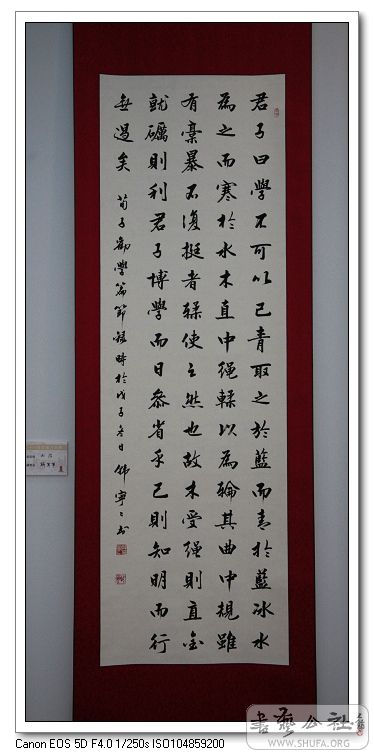 君子曰學不可以已青取之於藍而青於藍冰水
為之而寒於水木直中繩輮以為輪其曲中規雖
有藁暴不復挺者輮使之然也故木受繩則直金
就礪則利君子博學而日參省乎己則知明而行
無過矣 荀子勸學篇節錄時於戊子冬日 寧〻書
書藝公社
WWW.SHUFA.ORG
Canon EOS 5D F4.0 1/250s ISO104859200